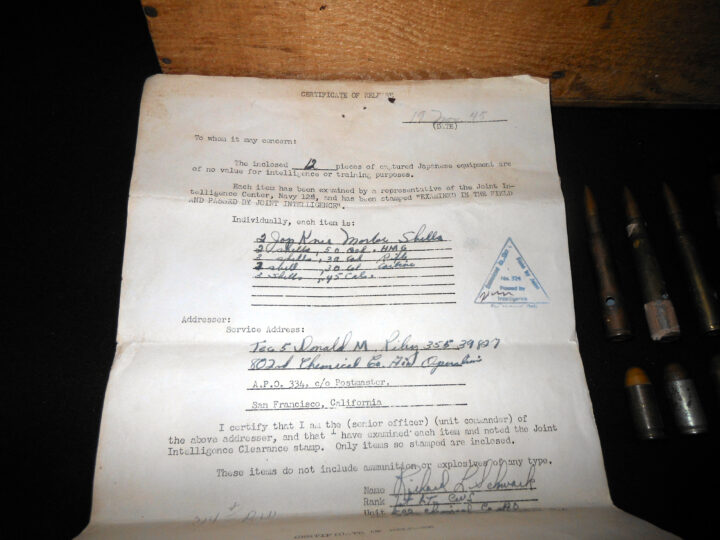 CERTIFICATE OF RELEASE
19 Nov. 45
(DATE)
To whom it may concern:
The inclosed 12 pieces of captured Japanese equipment are
of no value for intelligence or training purposes.
Each item has been examined by a representative of the Joint In-
telligence Center, Navy 128, and has been stamped "EXAMINED IN THE FIELD
AND PASSED BY JOINT INTELLIGENCE".
Individually, each item is:
2 Jap Knee Mortar Shells
2 shells, 50 Cal. HMG
shells, 30 Cal Rifle
2 shell, 30 Cal Carbine
shells, 45 Cal.
No. 324
Passed by
Intelligence
Addresser:
Service Address:
Tec 5 Donald M. Riley 355 39827
802nd Chemical Co. Operations
A.P.O. 334, c/o Postmaster,
San Francisco, California
I certify that I am the (senior officer) (unit commander) of
the above addresser, and that I have examined each item and noted the Joint
Intelligence Clearance stamp. Only items so stamped are inclosed.
These items do not include ammunition or explosives of any type.
Name Richard L. Schwark
Rank 1st Lt, CWS
Unit 802 Chemical Co. AO
CERTIFICATE OF RELEASE